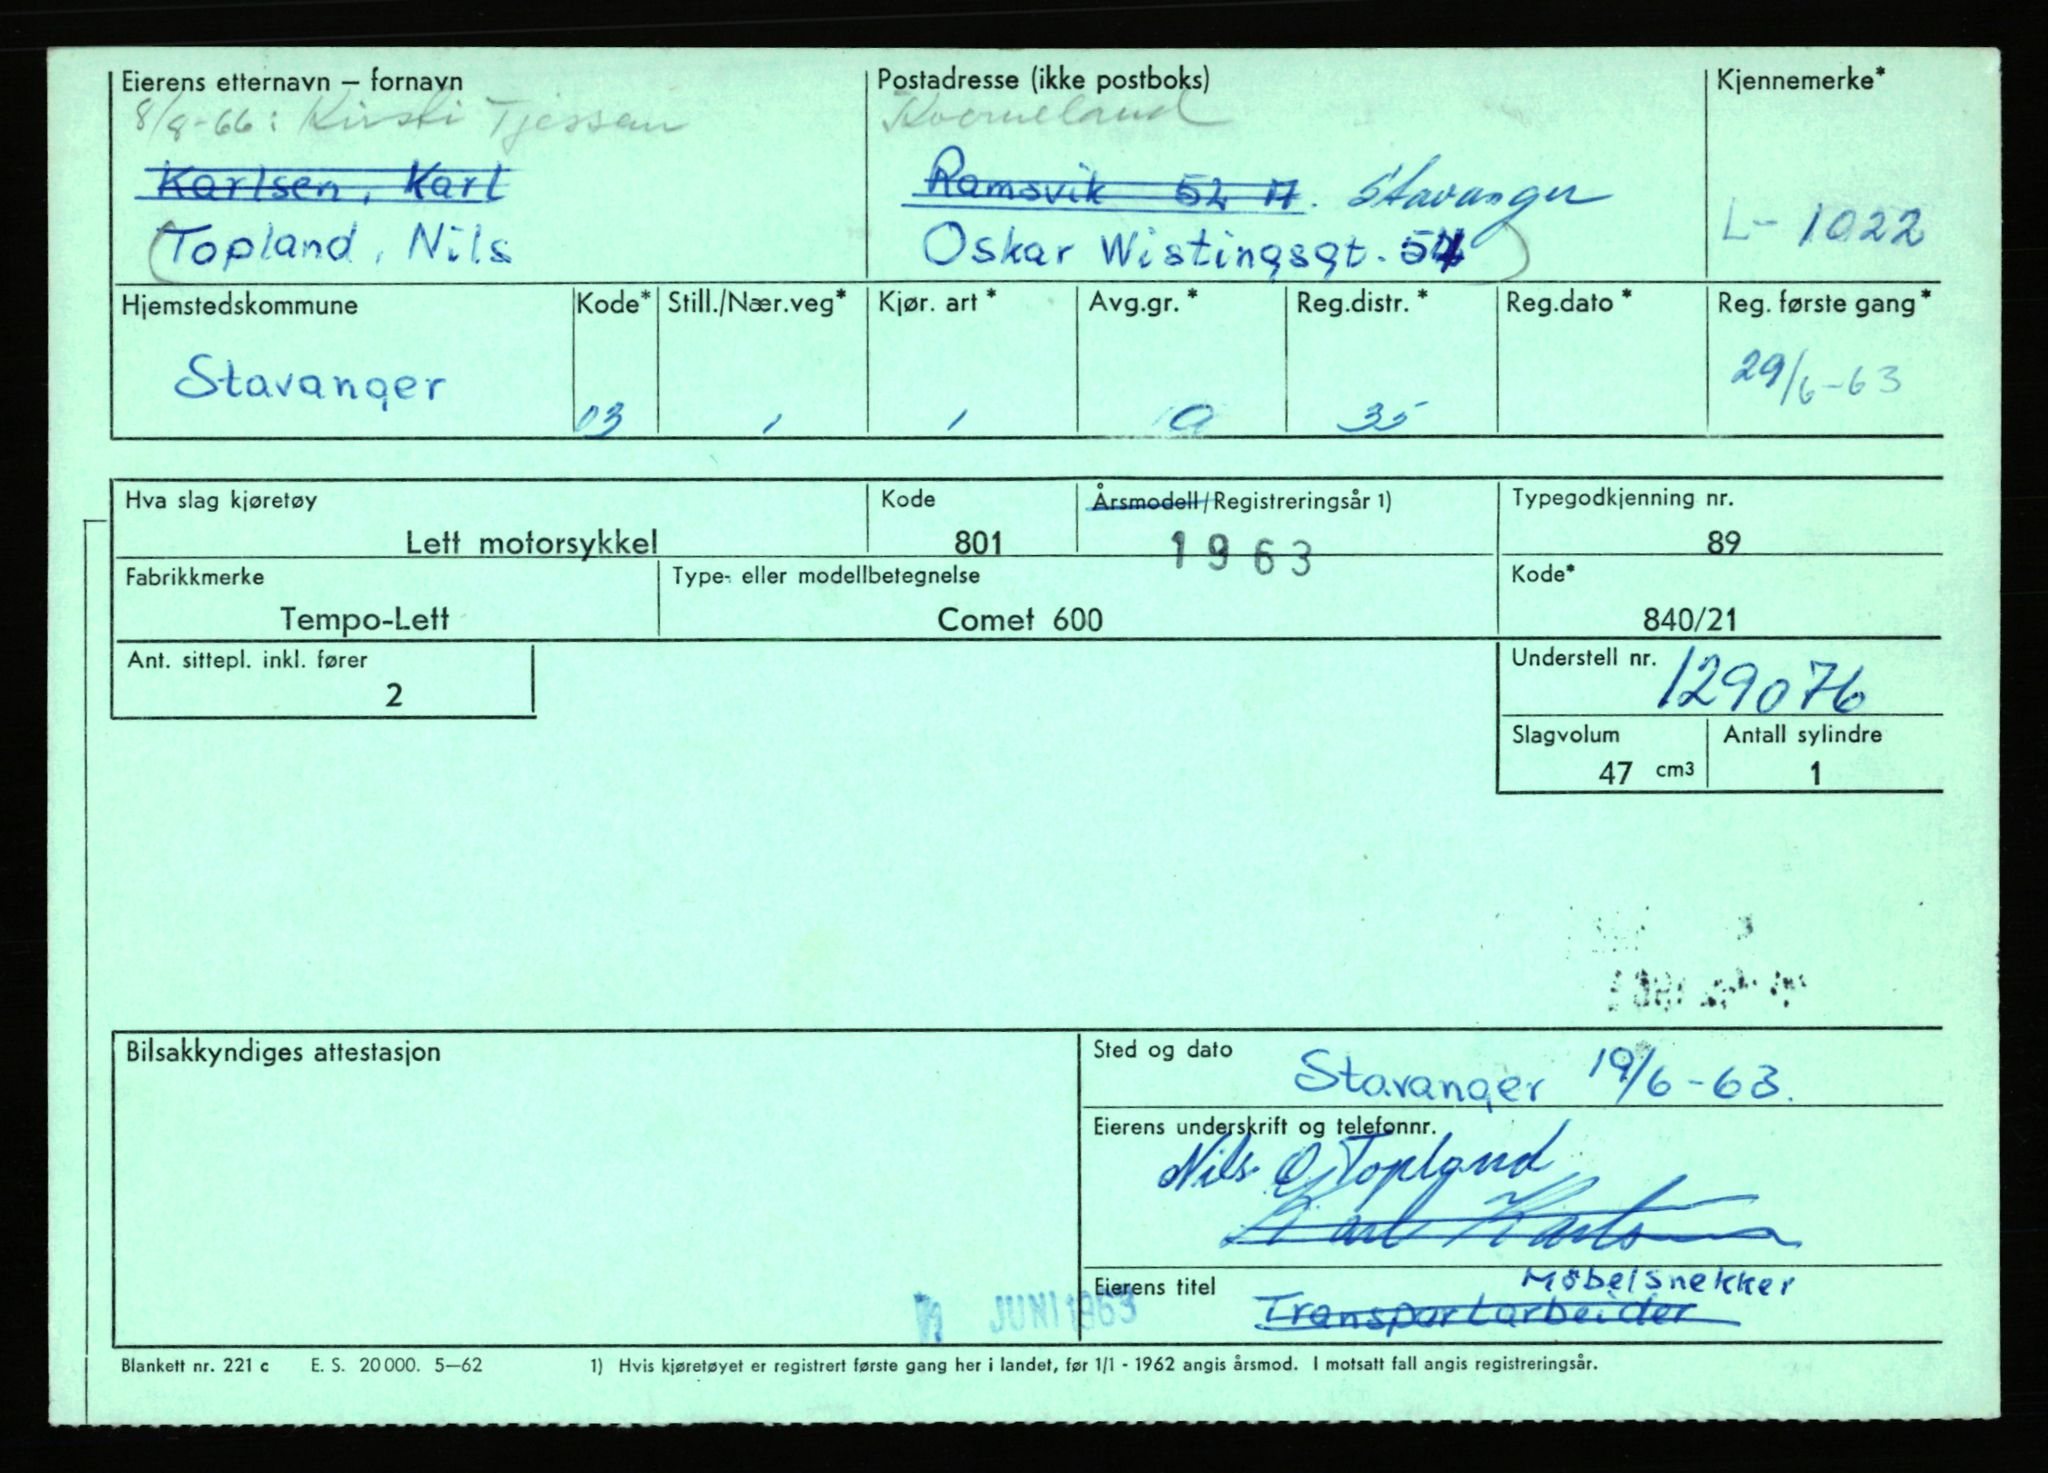 Eierens etternavn – fornavn
Postadresse (ikke postboks)
Kjennemerke*
8/8-66: Kirsti Tjessem
Kvorneland
Karlsen, Karl
Ramsvik 52 A. Stavanger
(Topland, Nils
Oskar Wistingsgt. 54)
L-1022
Hjemstedskommune
Kode*
Still./Nær.veg*
Kjør. art *
Avg.gr. *
Reg.distr. *
Reg.dato *
Reg. første gang*
Stavanger
03
1
1
a
35
29/6-63
Hva slag kjøretøy
Kode
Årsmodell/Registreringsår 1)
Typegodkjenning nr.
Lett motorsykkel
801
1963
89
Fabrikkmerke
Type- eller modellbetegnelse
Kode*
Tempo-Lett
Comet 600
840/21
Ant. sittepl. inkl. fører
2
Understell nr. 129076
Slagvolum
Antall sylindre
47 cm3
1
Bilsakkyndiges attestasjon
Sted og dato
Stavanger 19/6-63.
Eierens underskrift og telefonnr.
Nils O Topland
Karl Karlsen
Eierens titel
Möbelsnekker
Transportarbeider
JUNI 1963
Blankett nr. 221 c E. S. 20 000. 5–62
1) Hvis kjøretøyet er registrert første gang her i landet, før 1/1 - 1962 angis årsmod. I motsatt fall angis registreringsår.